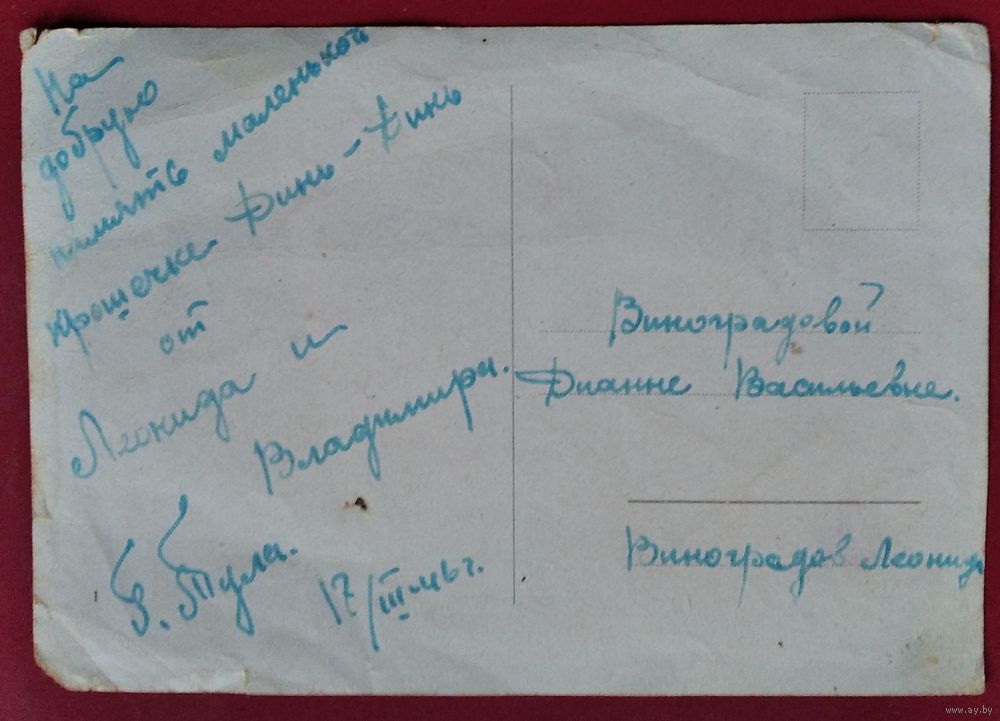 На
добрую
память маленькой
крошечке Динь-Динь
от
Леонида и
Владимира.
г. Тула.
17/III
Виноградовой
Дианне Васильевне.
Виноградов Леонид
www.ay.by